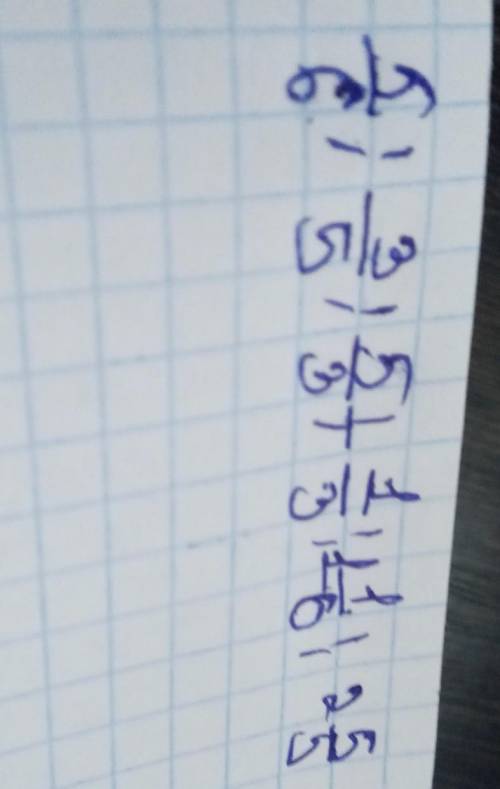 5/6 : 3/5 : 5/3 + 1/3 : 1 1/6 : 2 5/5